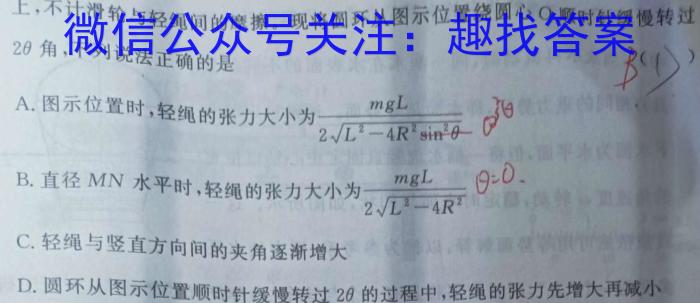 上,不计滑轮与轻绳间的摩擦。现将圆环从图示位置绕圆心O顺时针缓慢转过
微信公众号关注：趣找答案
2θ 角,下列说法正确的是 ( )
B
A. 图示位置时,轻绳的张力大小为 mgL / 2√(L²−4R²sin²θ)
B. 直径 MN 水平时,轻绳的张力大小为 mgL / 2√(L²−4R²) θ=0.
C. 轻绳与竖直方向间的夹角逐渐增大
D. 圆环从图示位置顺时针缓慢转过 2θ 的过程中,轻绳的张力先增大再减小